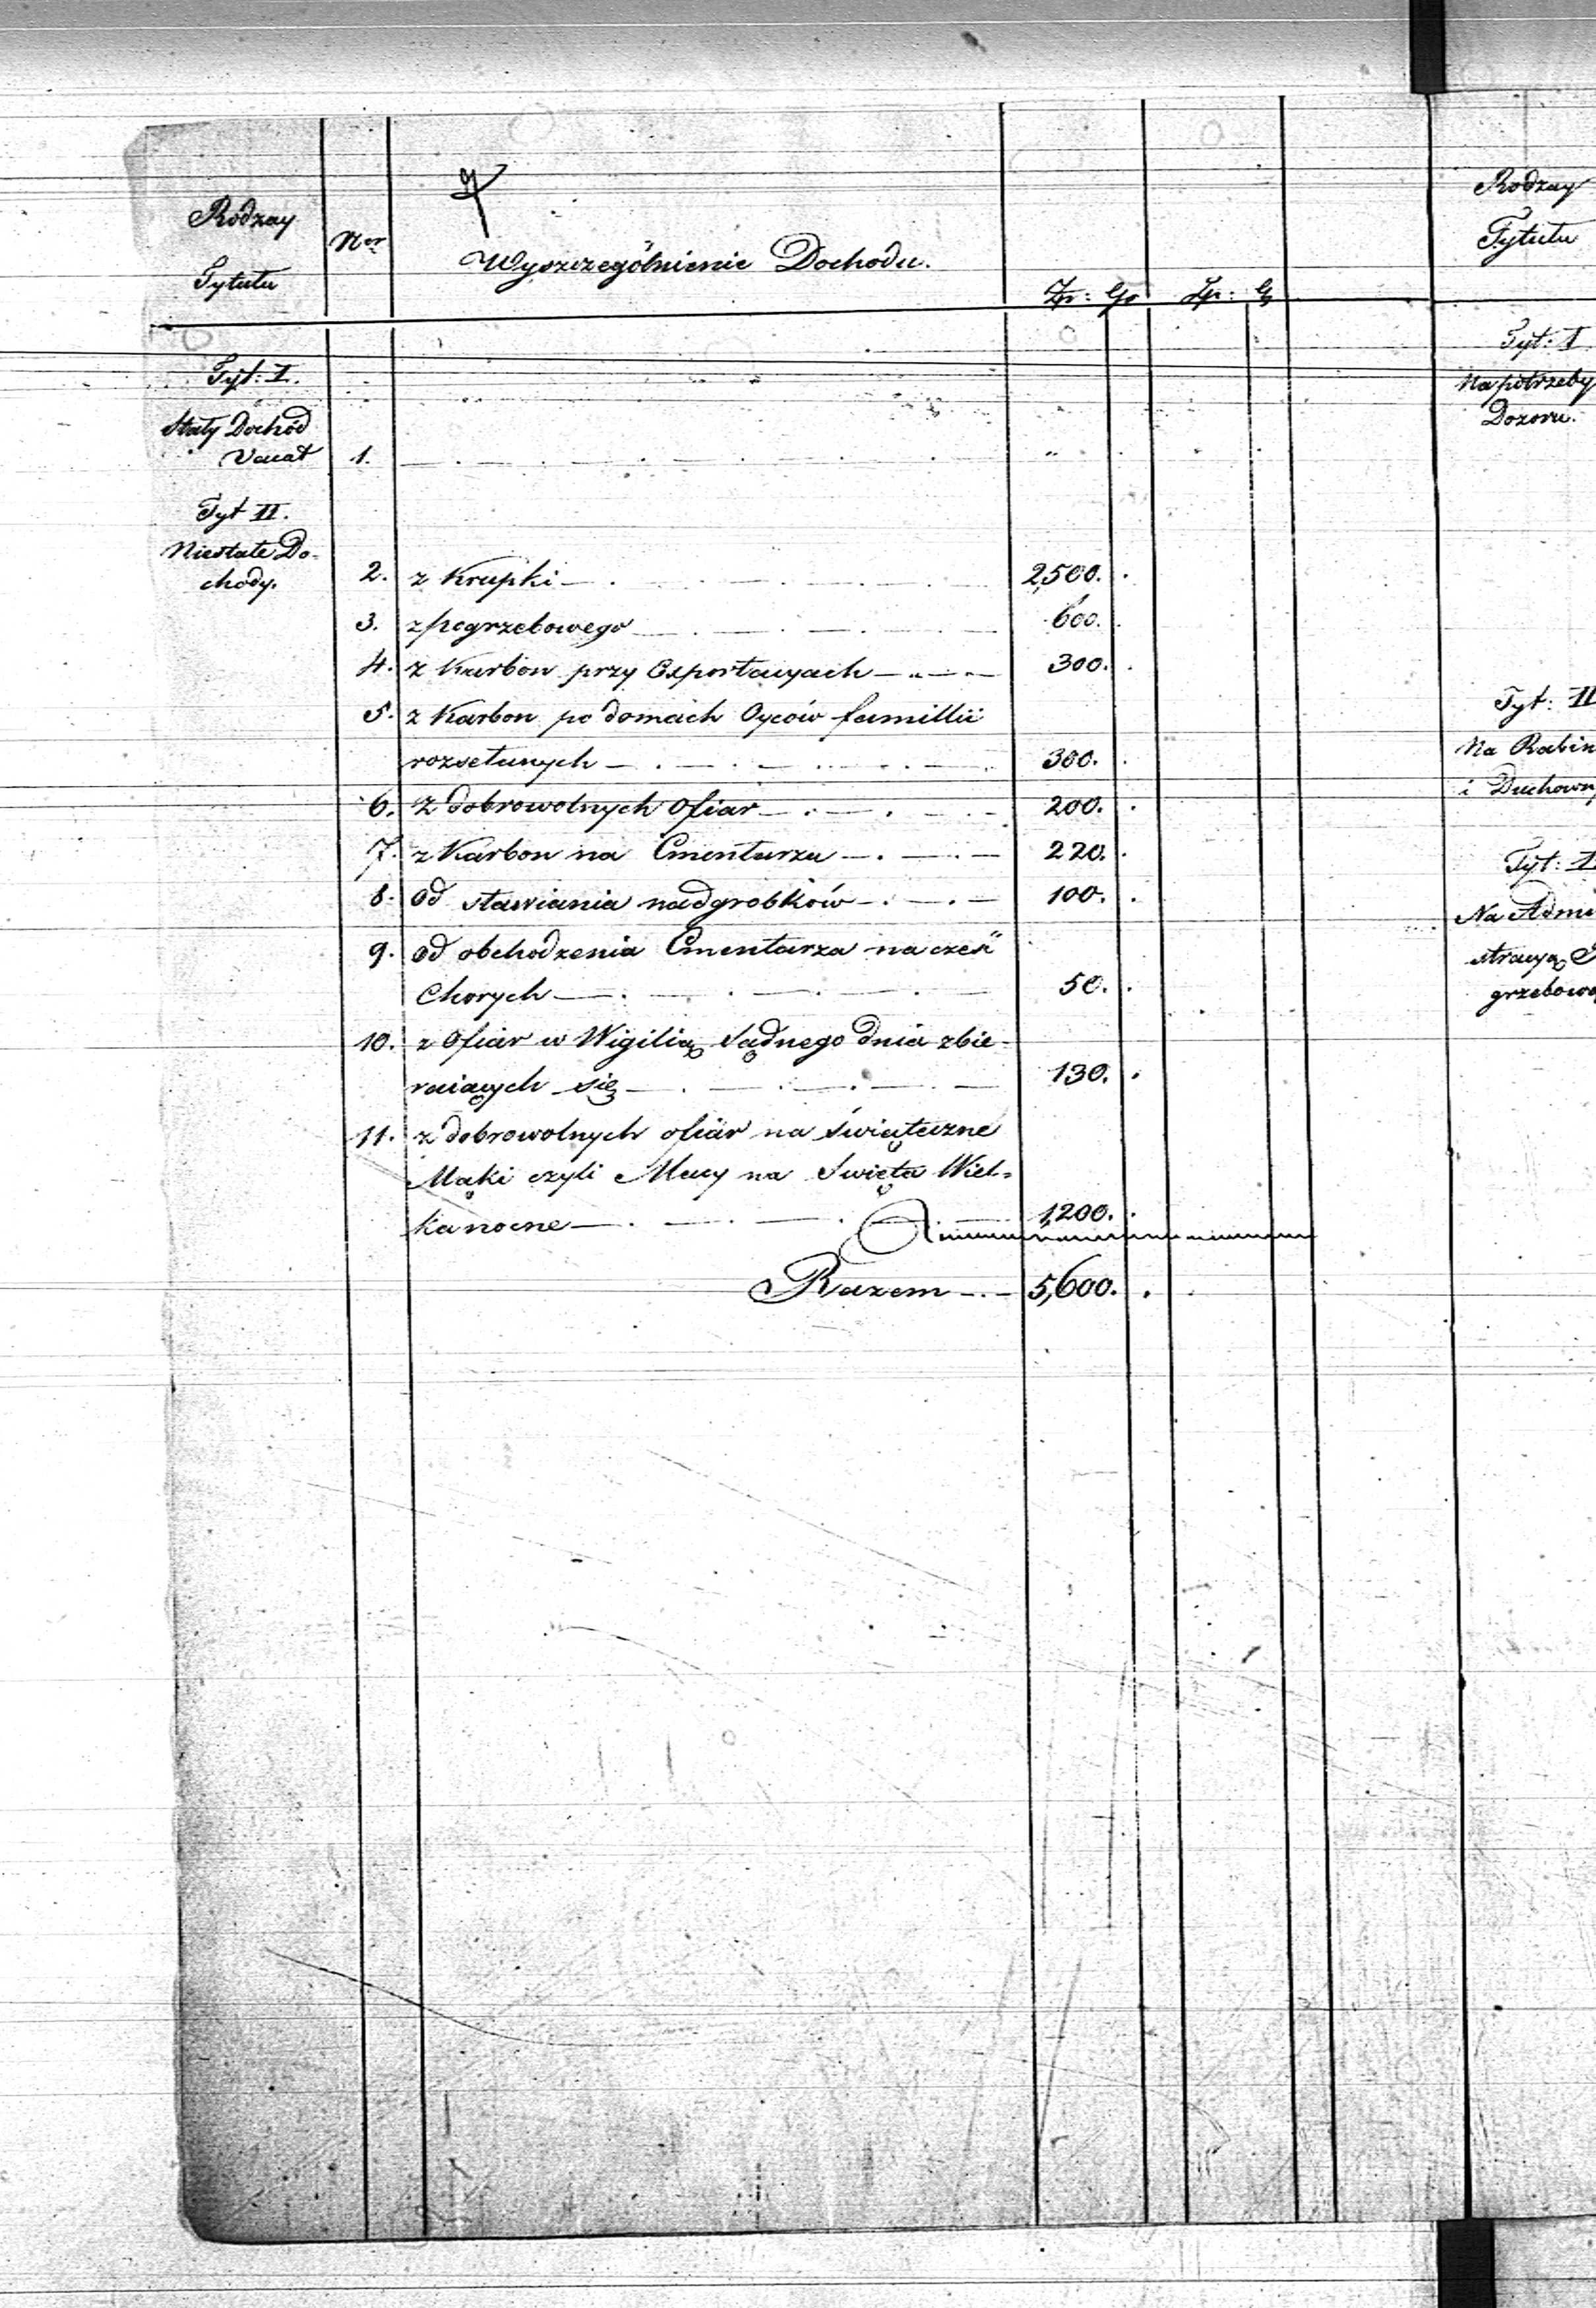 Rodzay
Tytułu
Nor
Wyszczególnienie Dochodu.
Zp: Gr Zp: G
Tyt: I.
Stały Dochód
Vacat 1.
Tyt II.
Niestałe Do-
chody.
2. z Krupki 2,500.
3. z pogrzebowego 600.
4. z Karbon przy Exportacyach 300.
5. z Karbon po domach Oyców familii
rozsełanych 300.
6. z dobrowolnych Ofiar 200.
7. z Karbon na Cmentarzu 220.
8. Od stawiania nadgrobków 100.
9. Od obchodzenia Cmentarza na cześć
Chorych 50.
10. z Ofiar w Wigilią Sądnego dnia zbie-
raiących się 130.
11. z dobrowolnych ofiar na świąteczne
Mąki czyli Macy na Swięta Wiel-
kanocne 1,200.
Razem 5,600.
Rodzay
Tytułu
Tyt: I
Na potrzeby
Dozoru.
Tyt: II
Na Rabin
i Duchown
Tyt: I
Na Admi
stracyą P
grzebowe